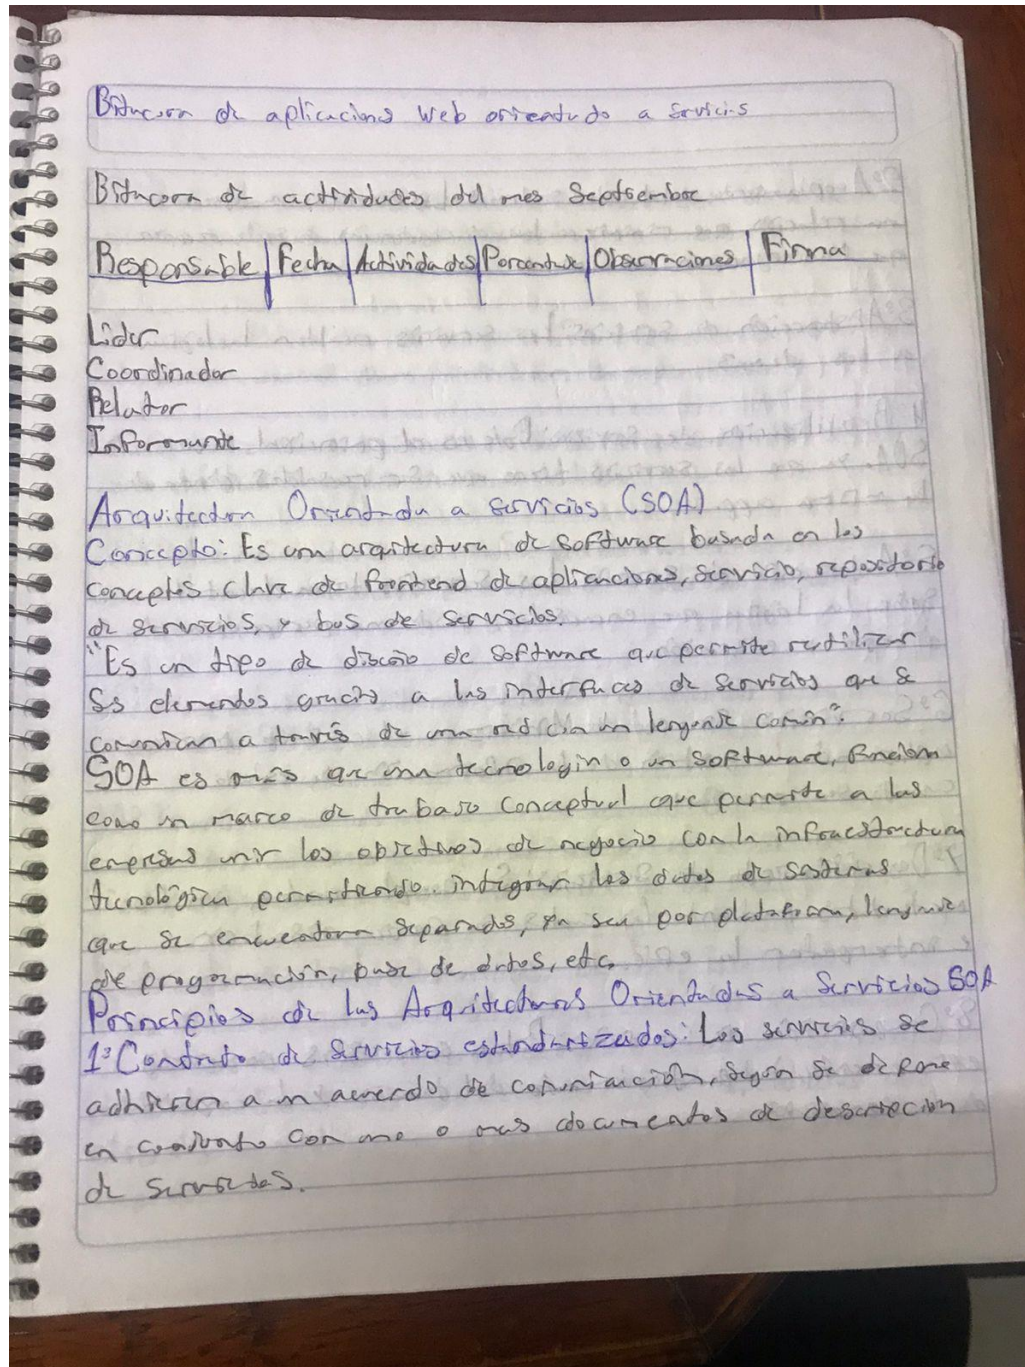 Bitacora de aplicaciones web orientado a servicios
Bitacora de actividades del mes Septiembre
Responsable | Fecha | Actividades | Porcentaje | Observaciones | Firma
Lider
Coordinador
Relator
Informante
Arquitectura Orientada a servicios (SOA)
Concepto: Es una arquitectura de software basada en los
conceptos clave de frontend de aplicaciones, servicio, repositorio
de servicios, y bus de servicios.
"Es un tipo de diseño de software que permite reutilizar
sus elementos gracias a las interfaces de servicios que se
comunican a través de una red con un lenguaje común".
SOA es más que una tecnologia o un software, funciona
como un marco de trabajo conceptual que permite a las
empresas unir los objetivos de negocio con la infraestructura
tecnológica permitiendo integrar los datos de sistemas
que se encuentran separados, ya sea por plataforma, lenguaje
de programación, base de datos, etc.
Principios de las Arquitecturas Orientadas a Servicios SOA
1° Contrato de servicios estandarizados: Los servicios se
adhieren a un acuerdo de comunicación, según se define
en conjunto con uno o mas documentos de descripcion
de servicios.